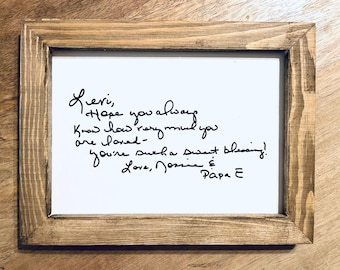 Levi,
Hope you always
know how very much you
are loved-
you're such a sweet blessing!
Love, Nonnie &
Papa E